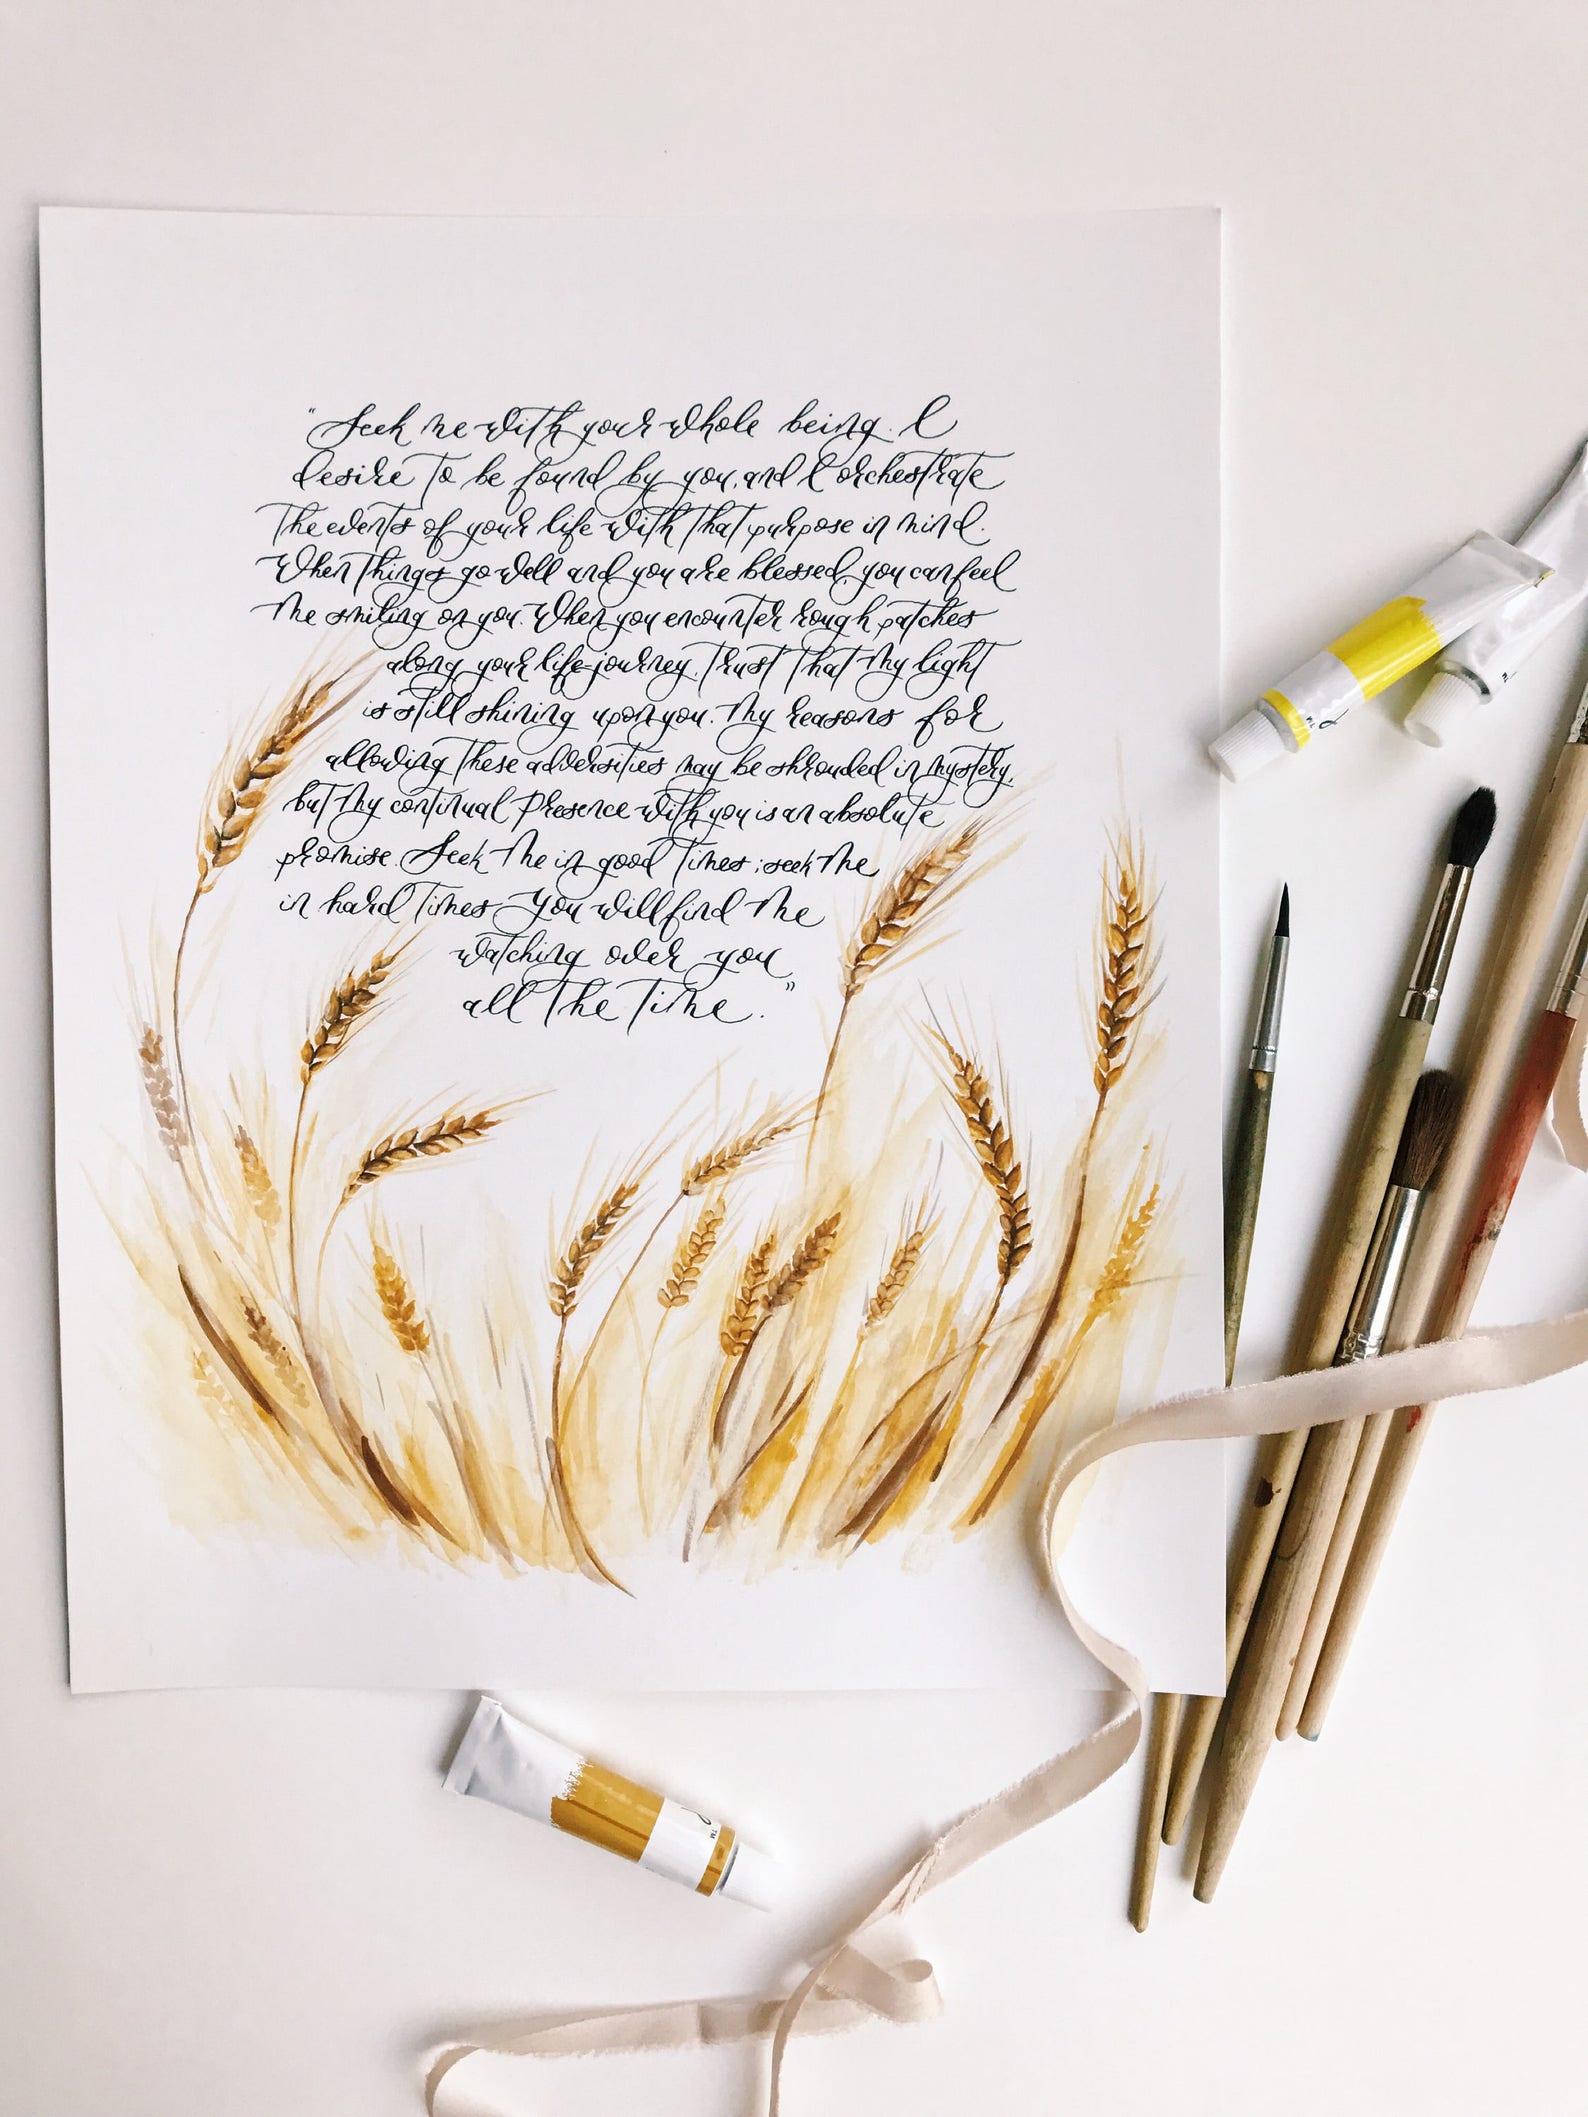 "Seek me with your whole being. I
desire to be found by you, and I orchestrate
the events of your life with that purpose in mind.
When things go well and you are blessed, you can feel
Me smiling on you. When you encounter rough patches
along your life-journey, trust that My light
is still shining upon you. My reasons for
allowing these adversities may be shrouded in mystery,
but My continual Presence with you is an absolute
promise. Seek Me in good times; seek Me
in hard times. You will find Me
watching over you
all the time."
TM